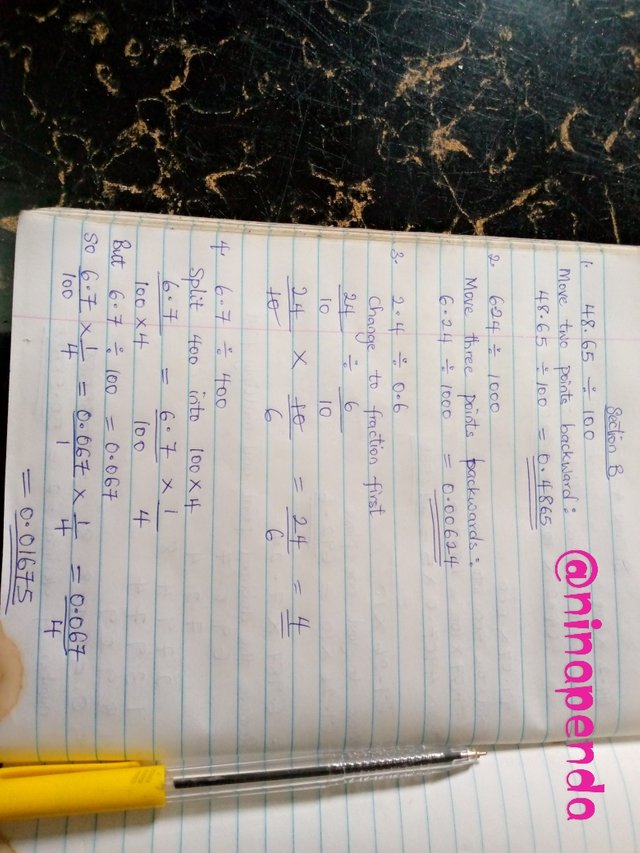 Section B
1. 48.65 ÷ 100
Move two points backward:
48.65 ÷ 100 = 0.4865
2. 624 ÷ 1000
Move three points backwards:
6.24 ÷ 1000 = 0.00624
3. 2.4 ÷ 0.6
Change to fraction first
24/10 ÷ 6/10
24/10 × 10/6 = 24/6 = 4
4. 6.7 ÷ 400
Split 400 into 100 × 4
6.7/100×4 = 6.7/100 × 1/4
But 6.7 ÷ 100 = 0.067
So 6.7/100 × 1/4 = 0.067/1 × 1/4 = 0.067/4
= 0.01675
@ninapenda